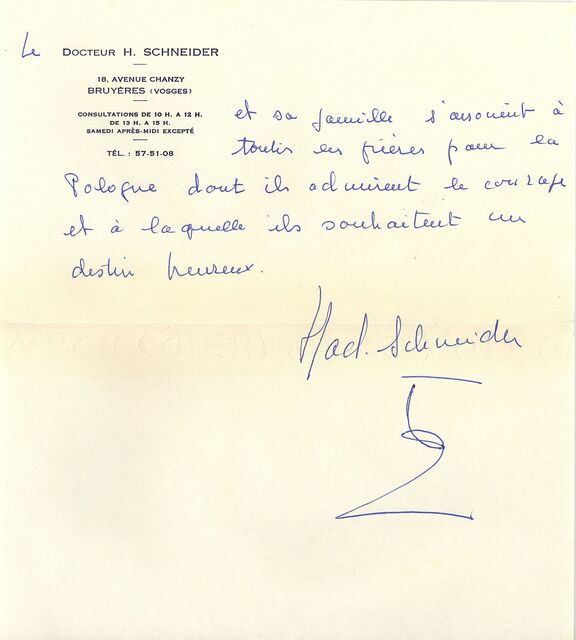 Le DOCTEUR H. SCHNEIDER
18, AVENUE CHANZY
BRUYÈRES (VOSGES)
CONSULTATIONS DE 10 H. A 12 H.
DE 13 H. A 15 H.
SAMEDI APRÈS-MIDI EXCEPTÉ
TÉL. : 57-51-08
et sa famille s'associent à
toutes les prières pour la
Pologne dont ils admirent le courage
et à laquelle ils souhaitent un
destin heureux.
Mad. Schneider